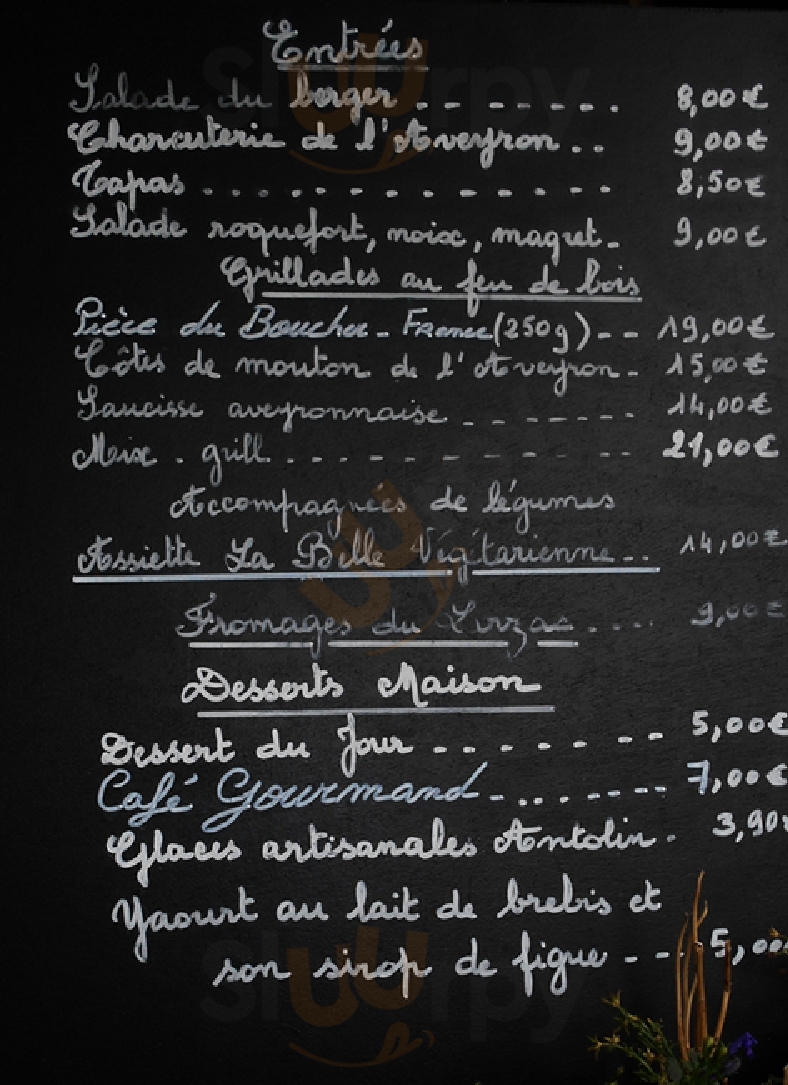 Entrées
Salade du berger .. ...... 8,00€
Charcuterie de l'Aveyron .. 9,00€
Tapas .............. 8,50€
Salade roquefort, noix, magret. 9,00€
Grillades au feu de bois
Pièce du Boucher - France (250g) -- 19,00€
Côtes de mouton de l'Aveyron - 15,00€
Saucisse aveyronnaise ....... 14,00€
Meix . grill ........... 21,00€
Accompagnées de légumes
Assiette La Belle Végétarienne .. 14,00€
Fromages du Larzac .... 9,00€
Desserts Maison
Dessert du Jour ........ 5,00€
Café Gourmand -........ 7,00€
Glaces artisanales Antolin - 3,90
Yaourt au lait de brebis et
son sirop de figue --. 5,00